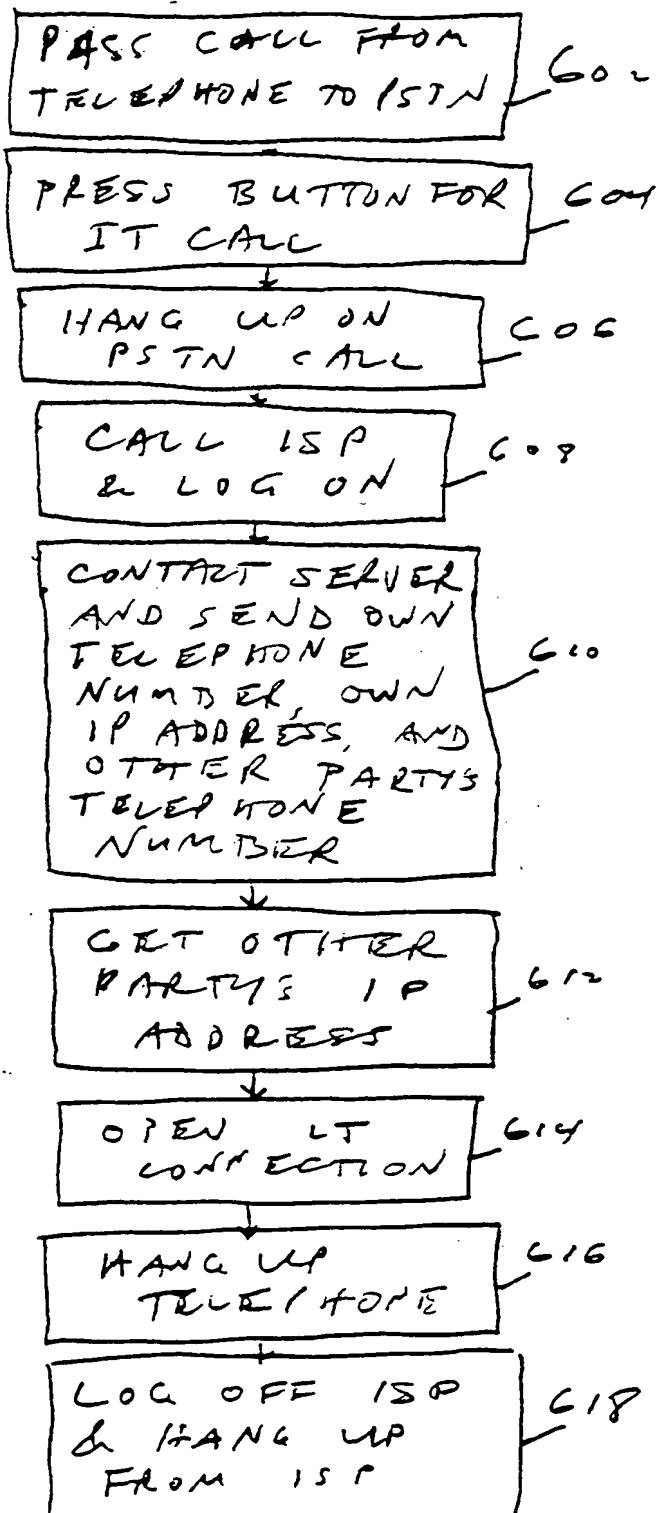 PASS CALL FROM
TELEPHONE TO PSTN
602
PRESS BUTTON FOR
IT CALL
604
HANG UP ON
PSTN CALL
606
CALL ISP
& LOG ON
608
CONTACT SERVER
AND SEND OWN
TELEPHONE
NUMBER, OWN
IP ADDRESS, AND
OTHER PARTY'S
TELEPHONE
NUMBER
610
GET OTHER
PARTY'S IP
ADDRESS
612
OPEN IT
CONNECTION
614
HANG UP
TELEPHONE
616
LOG OFF ISP
& HANG UP
FROM ISP
618